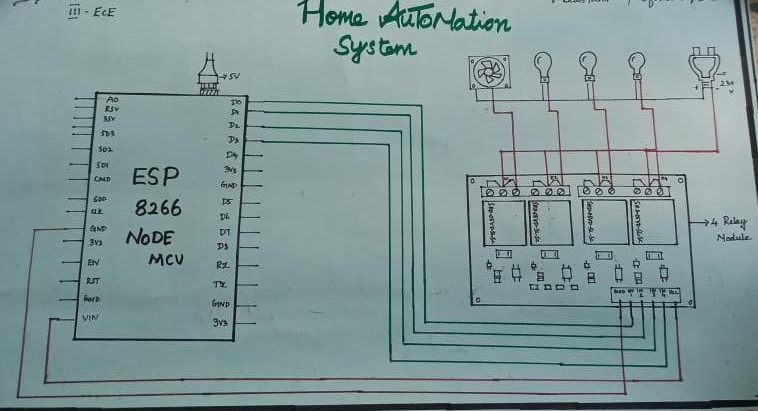 III - ECE
Home AuTOMation
System
→ 5V
A0
RSV
RSV
SD3
SD2
SD1
CMD
SD0
CLK
GND
3V3
EN
RST
GND
VIN
ESP
8266
NODE
MCU
D0
D1
D2
D3
D4
3V3
GND
D5
D6
D7
D8
RX
TX
GND
3V3
230
V
→ 4 Relay
Module
GND IN1 IN2 IN3 IN4 VCC